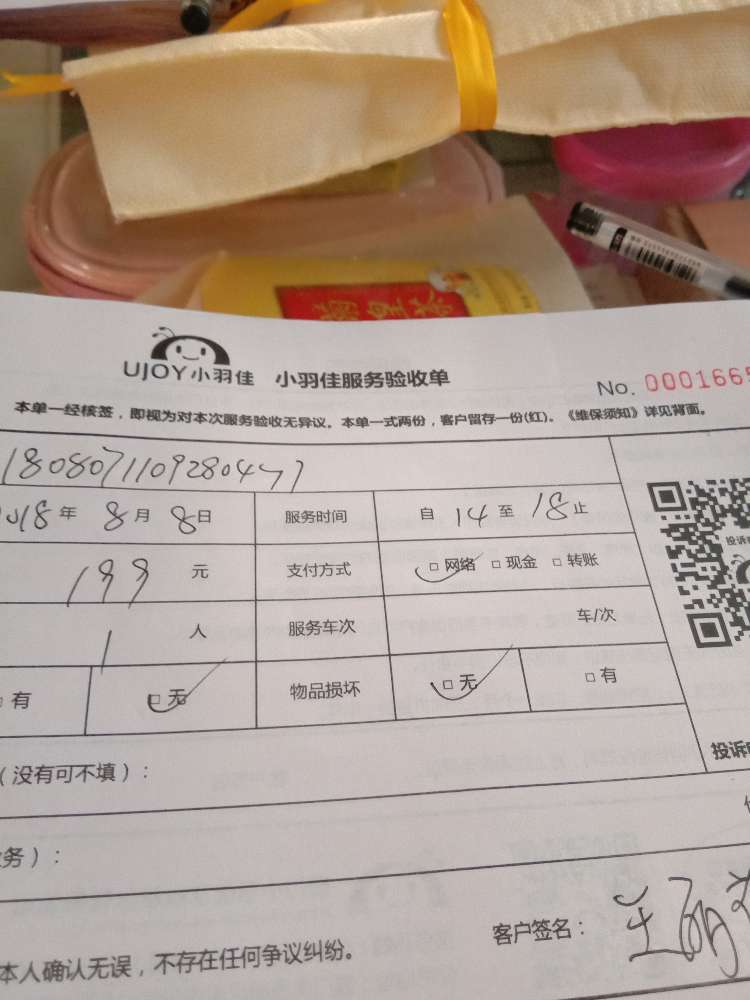 UJOY小羽佳 小羽佳服务验收单
No. 0001665
本单一经核签，即视为对本次服务验收无异议。本单一式两份，客户留存一份(红)。《维保须知》详见背面。
1808071109280477
2018年 8月 8日 服务时间 自 14 至 18 止
199 元 支付方式 □网络 □现金 □转账
1 人 服务车次 车/次
□有 □无 物品损坏 □无 □有
投诉
（没有可不填）：
务）：
本人确认无误，不存在任何争议纠纷。
客户签名： 王丽